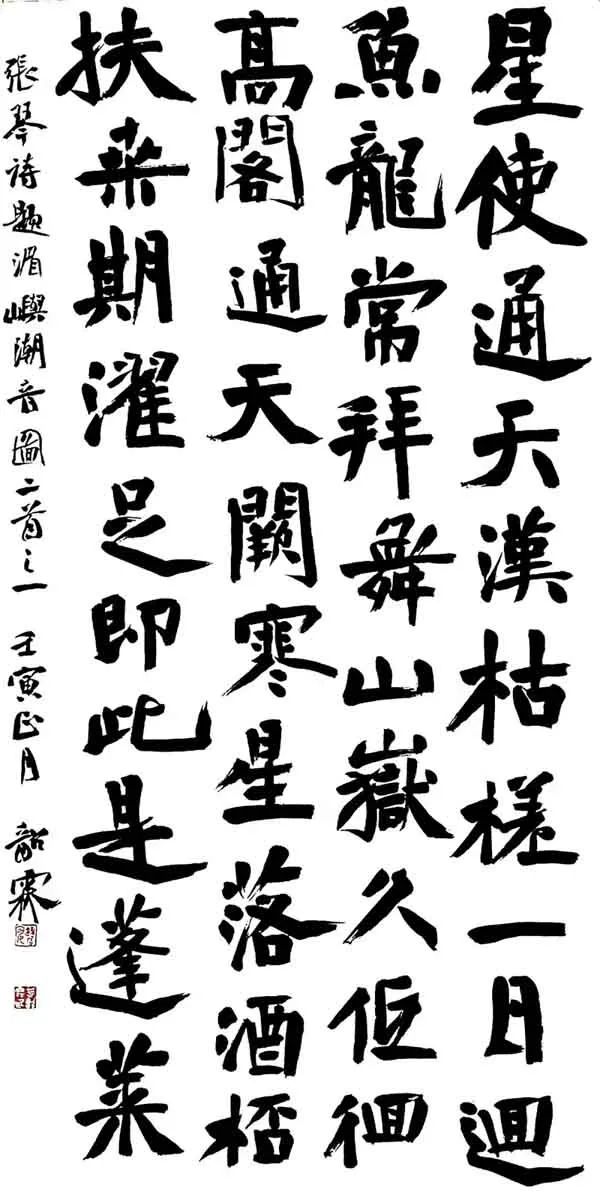 星使通天漢枯槎一日迴
魚龍常拜舞山嶽久低徊
高閣通天闕寒星落酒桮
扶桒期濯足即此是蓬萊
張琴詩題湄嶼潮音圖二首之一 壬寅正月 韶霖